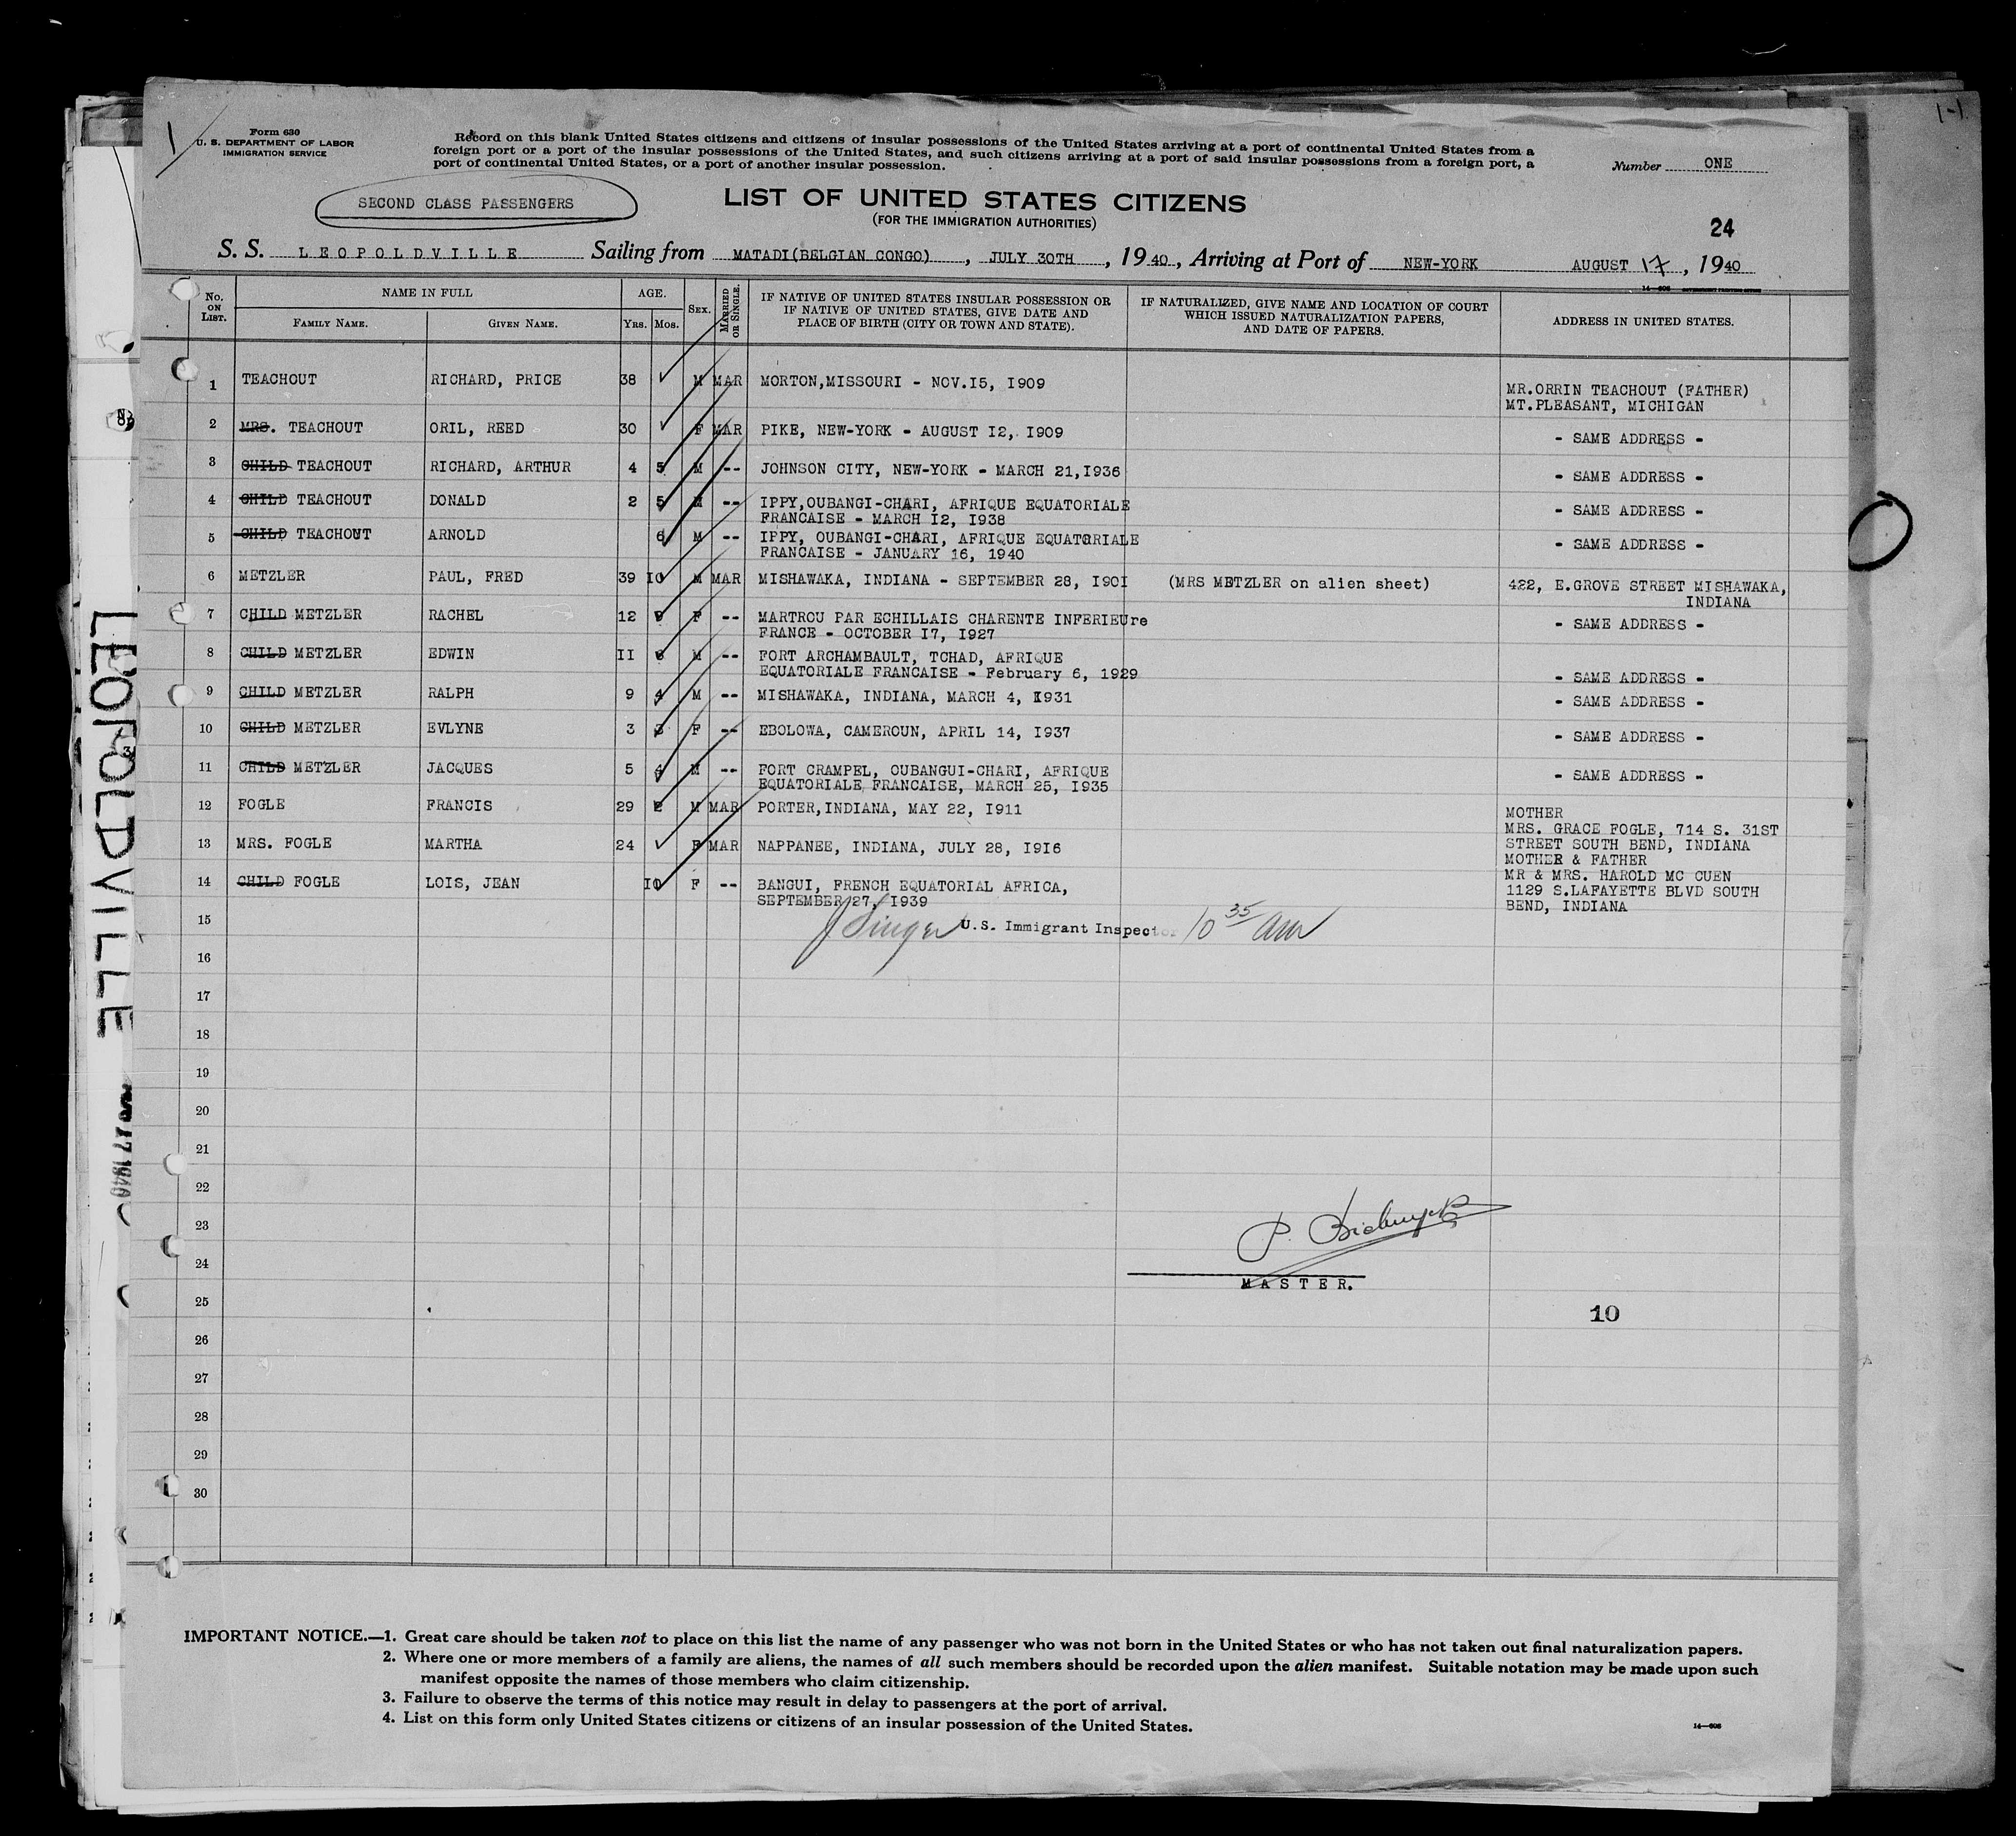 Form 630
U. S. DEPARTMENT OF LABOR
IMMIGRATION SERVICE
Record on this blank United States citizens and citizens of insular possessions of the United States arriving at a port of continental United States from a
foreign port or a port of the insular possessions of the United States, and such citizens arriving at a port of said insular possessions from a foreign port, a
port of continental United States, or a port of another insular possession.
Number ONE
SECOND CLASS PASSENGERS
LIST OF UNITED STATES CITIZENS
(FOR THE IMMIGRATION AUTHORITIES)
24
S. S. LEOPOLDVILLE Sailing from MATADI(BELGIAN CONGO), JULY 30TH, 1940, Arriving at Port of NEW-YORK AUGUST 17, 1940
No. ON LIST. NAME IN FULL FAMILY NAME. GIVEN NAME. AGE. YRS. MOS. SEX. MARRIED OR SINGLE. IF NATIVE OF UNITED STATES INSULAR POSSESSION OR IF NATIVE OF UNITED STATES, GIVE DATE AND PLACE OF BIRTH (CITY OR TOWN AND STATE). IF NATURALIZED, GIVE NAME AND LOCATION OF COURT WHICH ISSUED NATURALIZATION PAPERS, AND DATE OF PAPERS. ADDRESS IN UNITED STATES.
1 TEACHOUT RICHARD, PRICE 38 M MAR MORTON,MISSOURI - NOV.I5, I909 MR.ORRIN TEACHOUT (FATHER)
MT.PLEASANT, MICHIGAN
2 MRS. TEACHOUT ORIL, REED 30 F MAR PIKE, NEW-YORK - AUGUST I2, I909 - SAME ADDRESS -
3 CHILD TEACHOUT RICHARD, ARTHUR 4 5 M -- JOHNSON CITY, NEW-YORK - MARCH 21,I936 - SAME ADDRESS -
4 CHILD TEACHOUT DONALD 2 5 M -- IPPY,OUBANGI-CHARI, AFRIQUE EQUATORIALE
FRANCAISE - MARCH I2, I938 - SAME ADDRESS -
5 CHILD TEACHOUT ARNOLD 6 M -- IPPY, OUBANGI-CHARI, AFRIQUE EQUATORIALE
FRANCAISE - JANUARY 16, 1940 - SAME ADDRESS -
6 METZLER PAUL, FRED 39 I0 M MAR MISHAWAKA, INDIANA - SEPTEMBER 28, I90I (MRS METZLER on alien sheet) 422, E.GROVE STREET MISHAWAKA,
INDIANA
7 CHILD METZLER RACHEL 12 9 F -- MARTROU PAR ECHILLAIS CHARENTE INFERIEUre
FRANCE - OCTOBER I7, I927 - SAME ADDRESS -
8 CHILD METZLER EDWIN II 6 M -- FORT ARCHAMBAULT, TCHAD, AFRIQUE
EQUATORIALE FRANCAISE - February 6, 1929 - SAME ADDRESS -
9 CHILD METZLER RALPH 9 4 M -- MISHAWAKA, INDIANA, MARCH 4, I931 - SAME ADDRESS -
10 CHILD METZLER EVLYNE 3 3 F -- EBOLOWA, CAMEROUN, APRIL 14, I937 - SAME ADDRESS -
11 CHILD METZLER JACQUES 5 4 M -- FORT CRAMPEL, OUBANGUI-CHARI, AFRIQUE
EQUATORIALE FRANCAISE, MARCH 25, I935 - SAME ADDRESS -
12 FOGLE FRANCIS 29 2 M MAR PORTER,INDIANA, MAY 22, I911 MOTHER
MRS. GRACE FOGLE, 714 S. 31ST
13 MRS. FOGLE MARTHA 24 F MAR NAPPANEE, INDIANA, JULY 28, I9I6 STREET SOUTH BEND, INDIANA
MOTHER & FATHER
14 CHILD FOGLE LOIS, JEAN I0 F -- BANGUI, FRENCH EQUATORIAL AFRICA, MR & MRS. HAROLD MC CUEN
SEPTEMBER 27, I939 1129 S.LAFAYETTE BLVD SOUTH
BEND, INDIANA
15 J Singer U.S. Immigrant Inspector 10 35 am
16
17
18
19
20
21
22
23
24
MASTER.
25
10
26
27
28
29
30
IMPORTANT NOTICE.—1. Great care should be taken not to place on this list the name of any passenger who was not born in the United States or who has not taken out final naturalization papers.
2. Where one or more members of a family are aliens, the names of all such members should be recorded upon the alien manifest. Suitable notation may be made upon such
manifest opposite the names of those members who claim citizenship.
3. Failure to observe the terms of this notice may result in delay to passengers at the port of arrival.
4. List on this form only United States citizens or citizens of an insular possession of the United States.
14—606
LEOPOLDVILLE
17 1940